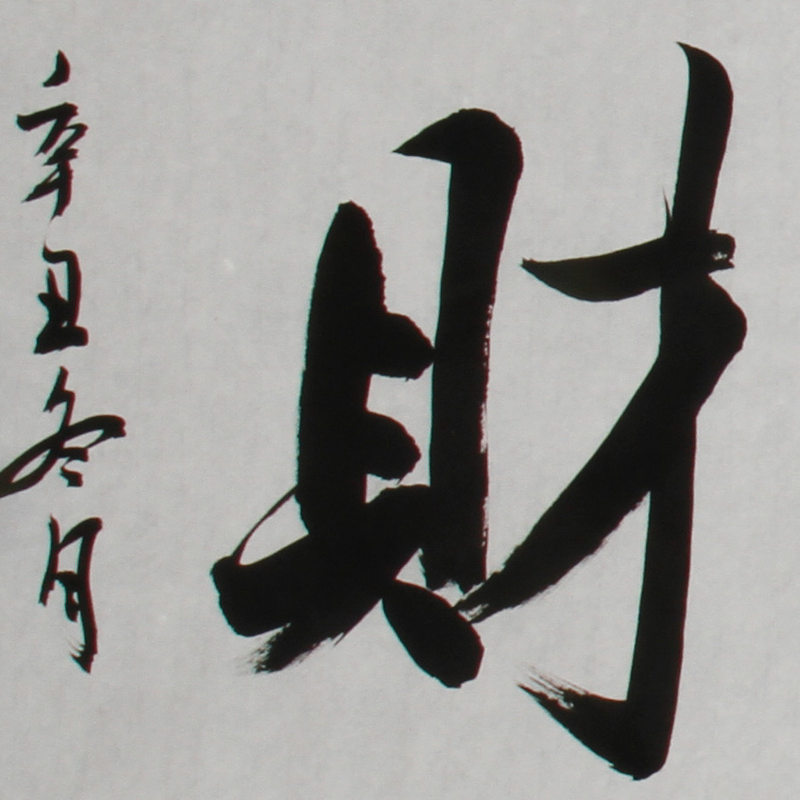 財
辛丑冬月